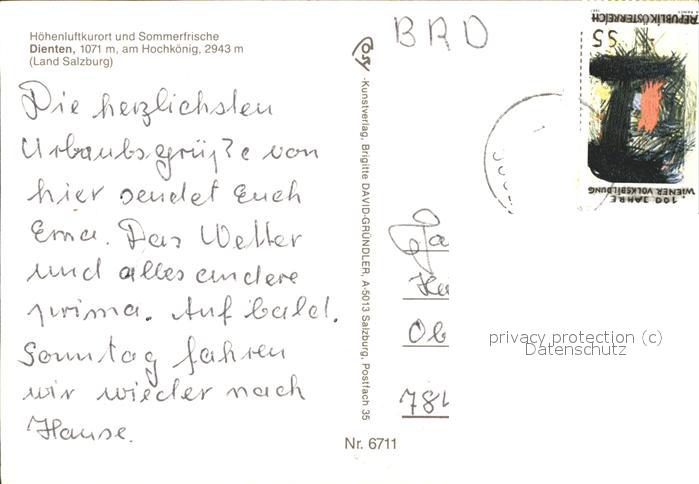 Höhenluftkurort und Sommerfrische
Dienten, 1071 m, am Hochkönig, 2943 m
(Land Salzburg)
Die herzlichsten
Urlaubsgrüße von
hier sendet Euch
Erna. Das Wetter
und alles andere
prima. Auf bald.
Sonntag fahren
wir wieder nach
Hause.
Cosy -Kunstverlag, Brigitte DAVID-GRÜNDLER, A-5013 Salzburg, Postfach 35
Nr. 6711
BRD
REPUBLIK ÖSTERREICH
S5
100 JAHRE
WIENER VOLKSBILDUNG
Ob
781
privacy protection (c)
Datenschutz